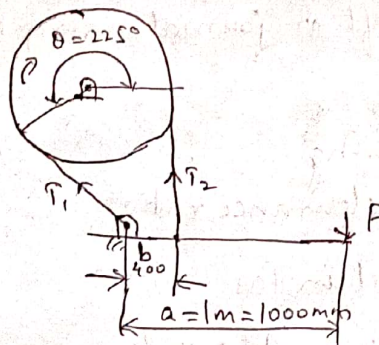 θ=225°
T₁
T₂
P
b
400
a=1m=1000mm